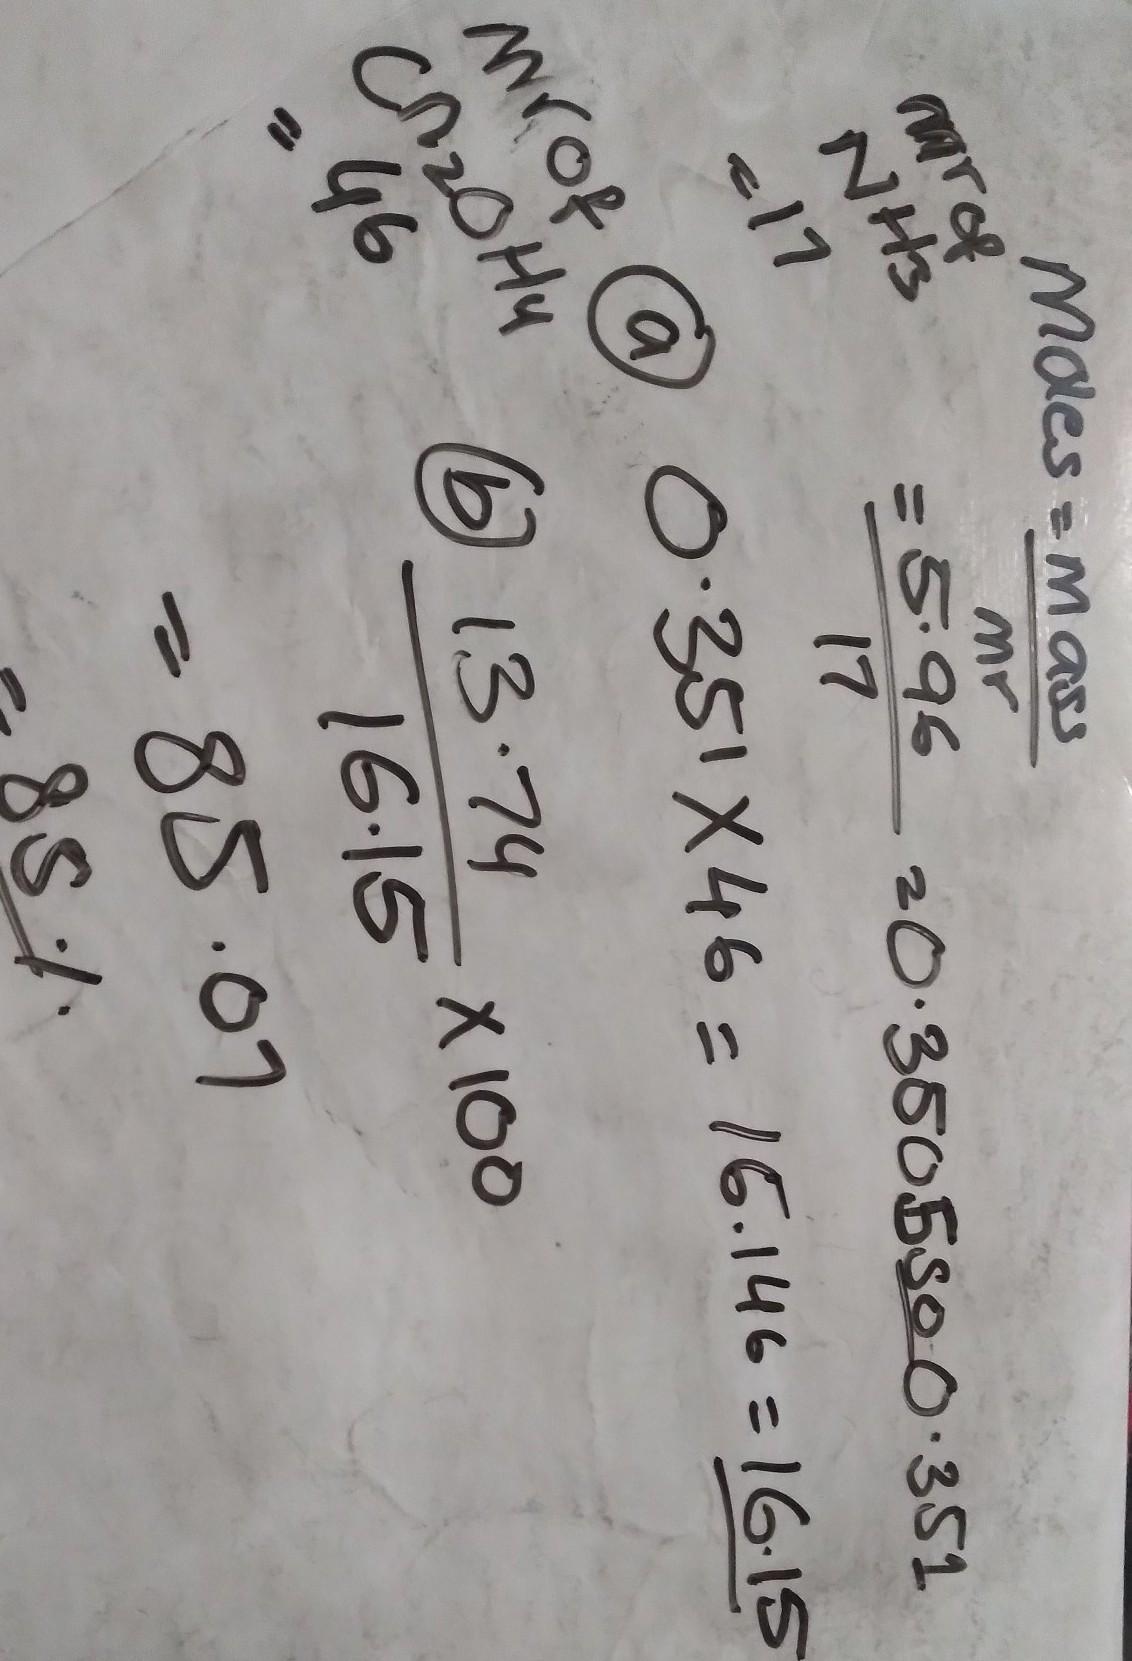 Moles = mass
mr
mr of
NH3
= 17
= 5.96
17
= 0.3505 50 0.351
(a) 0.351 X 46 = 16.146 = 16.15
Mr of
CN2OH4
= 46
(b) 13.74
16.15
X 100
= 85.07
= 85%